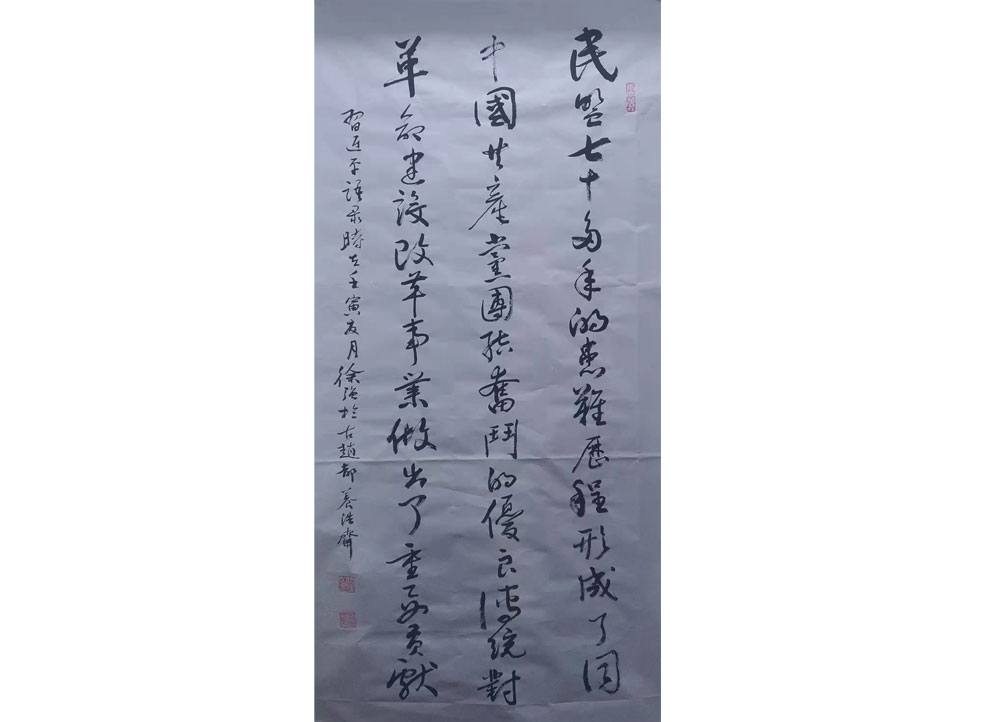 民盟七十多年的患難歷程形成了同
中國共產黨團結奮鬥的優良傳統對
革命建設改革事業做出了重要貢獻
習近平語录時在壬寅友月徐强於古趙都養浩齋